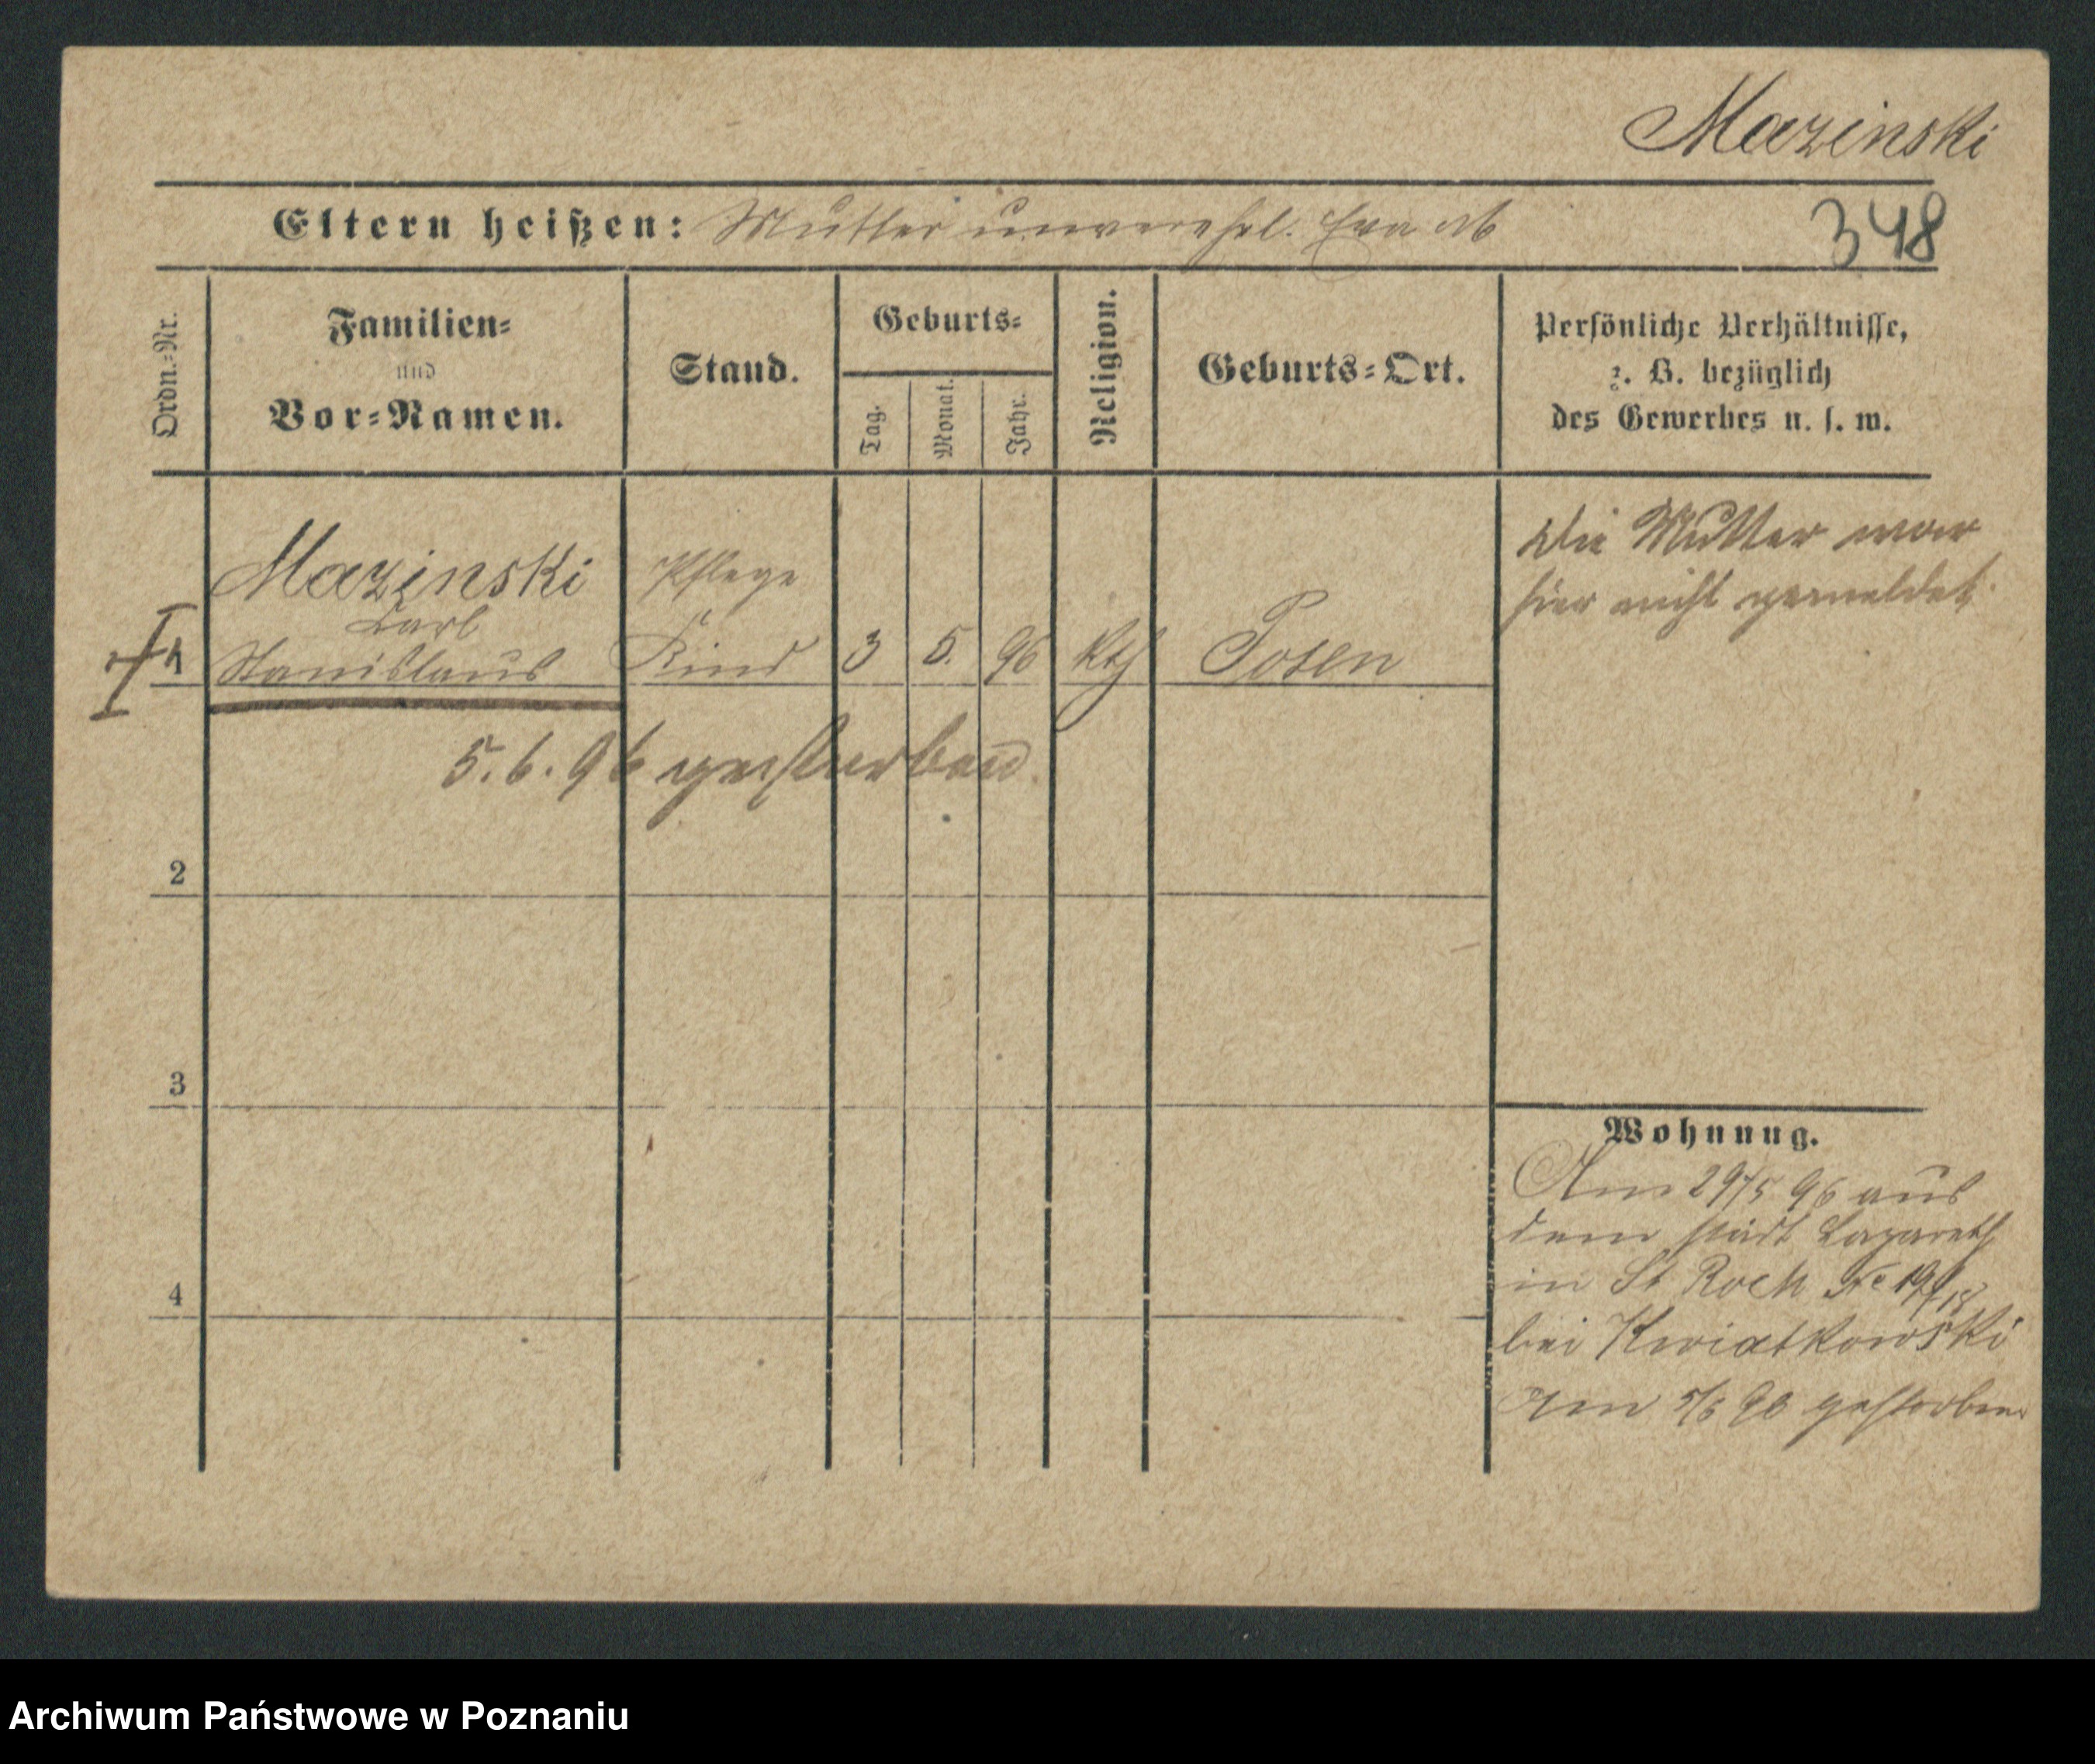 Mazinski
Eltern heißen: Mutter unverehel. Eva Ab
348
Ordn.=Nr.
Familien=
und
Vor=Namen.
Stand.
Geburts=
Tag.
Monat.
Jahr.
Religion.
Geburts=Ort.
Persönliche Verhältnisse,
z. B. bezüglich
des Gewerbes u. s. w.
Mazinski
Carl
1 Stanislaus
Pflege
Kind
3 5. 96 kth Posen
Die Mutter war
hier nicht gemeldet.
5.6.96 gestorben.
2
3
4
Wohnung.
Am 29/5 96 aus
dem städt Lazareth
in St Roch No
bei Kwiatkowski
Am 5/6 96 gestorben
Archiwum Państwowe w Poznaniu